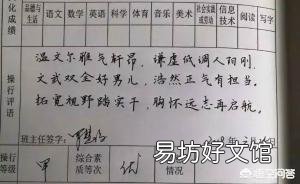 化成绩 品德与生活 语文 数学 英语 科学 体育 音乐 美术 社会实践或劳动 信息技术 阅读 写字
操行评语
温文尔雅气轩昂，谦虚低调人阳刚。
文武双全好男儿，浩然正气有担当。
拓宽视野踏实干，胸怀远志再启航。
班主任签字：
操行等级 甲 综合素质等次 优 情况
易坊好文馆
悟空问答